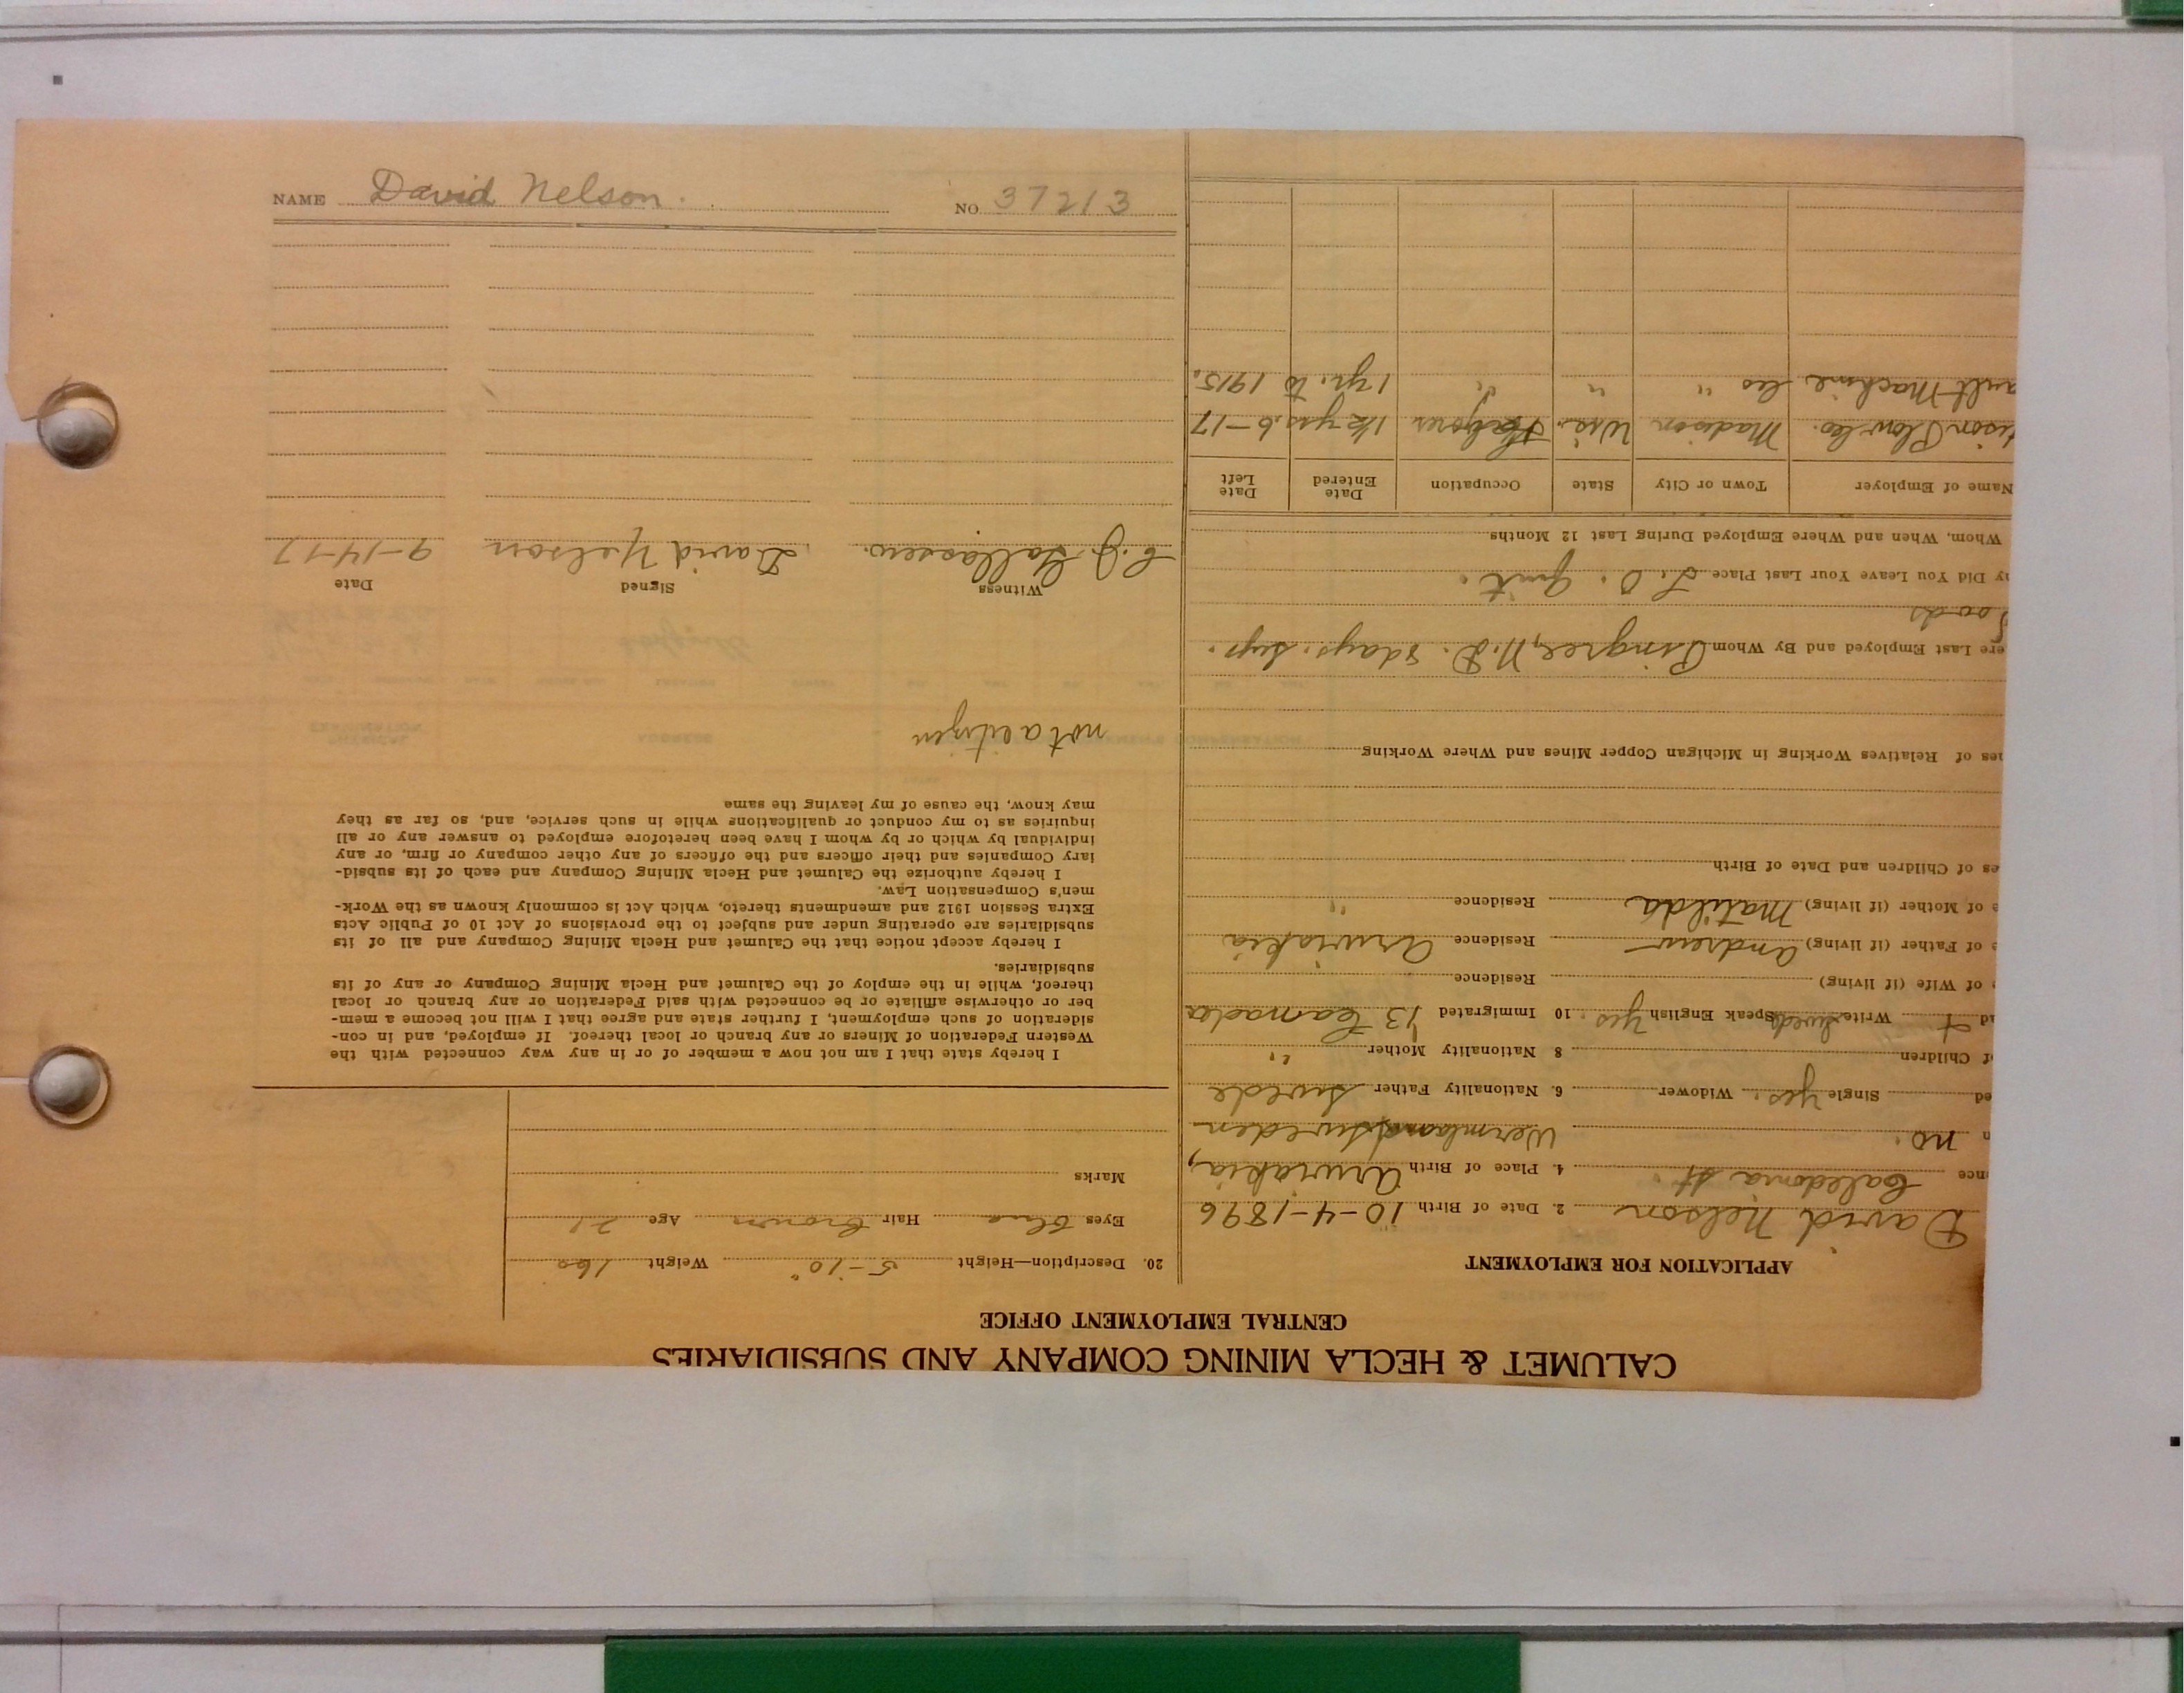 NAME David Nelson. NO. 37213
CALUMET & HECLA MINING COMPANY AND SUBSIDIARIES
CENTRAL EMPLOYMENT OFFICE
APPLICATION FOR EMPLOYMENT
David Nelson 2. Date of Birth 10-4-1896
nce Caledonia St. 4. Place of Birth
n no. Sweden
ed Single yes. Widower 6. Nationality Father Swede
of Children 8 Nationality Mother "
ad Write Swede Speak English yes. 10 Immigrated '13 Canada
e of Wife (if living) Residence
e of Father (if living) Andrew Residence
e of Mother (if living) Matilda Residence "
es of Children and Date of Birth
nes of Relatives Working in Michigan Copper Mines and Where Working
ere Last Employed and By Whom Pingree, N.D. 8 days.
y Did You Leave Your Last Place Quit.
Whom, When and Where Employed During Last 12 Months
Name of Employer Town or City State Occupation Date Entered Date Left
ison Plow Co. Madison Wis. 1½ yrs. 6-17
ault Machine Co " " " 1 yr. to 1915.
20. Description—Height 5-10" Weight 160
Eyes Blue Hair Brown Age 21
Marks
I hereby state that I am not now a member of or in any way connected with the
Western Federation of Miners or any branch or local thereof. If employed, and in con-
sideration of such employment, I further state and agree that I will not become a mem-
ber or otherwise affiliate or be connected with said Federation or any branch or local
thereof, while in the employ of the Calumet and Hecla Mining Company or any of its
subsidiaries.
I hereby accept notice that the Calumet and Hecla Mining Company and all of its
subsidiaries are operating under and subject to the provisions of Act 10 of Public Acts
Extra Session 1912 and amendments thereto, which Act is commonly known as the Work-
men's Compensation Law.
I hereby authorize the Calumet and Hecla Mining Company and each of its subsid-
iary Companies and their officers and the officers of any other company or firm, or any
individual by which or by whom I have been heretofore employed to answer any or all
inquiries as to my conduct or qualifications while in such service, and, so far as they
may know, the cause of my leaving the same
not a citizen
Witness Signed Date
David Nelson 9-14-17